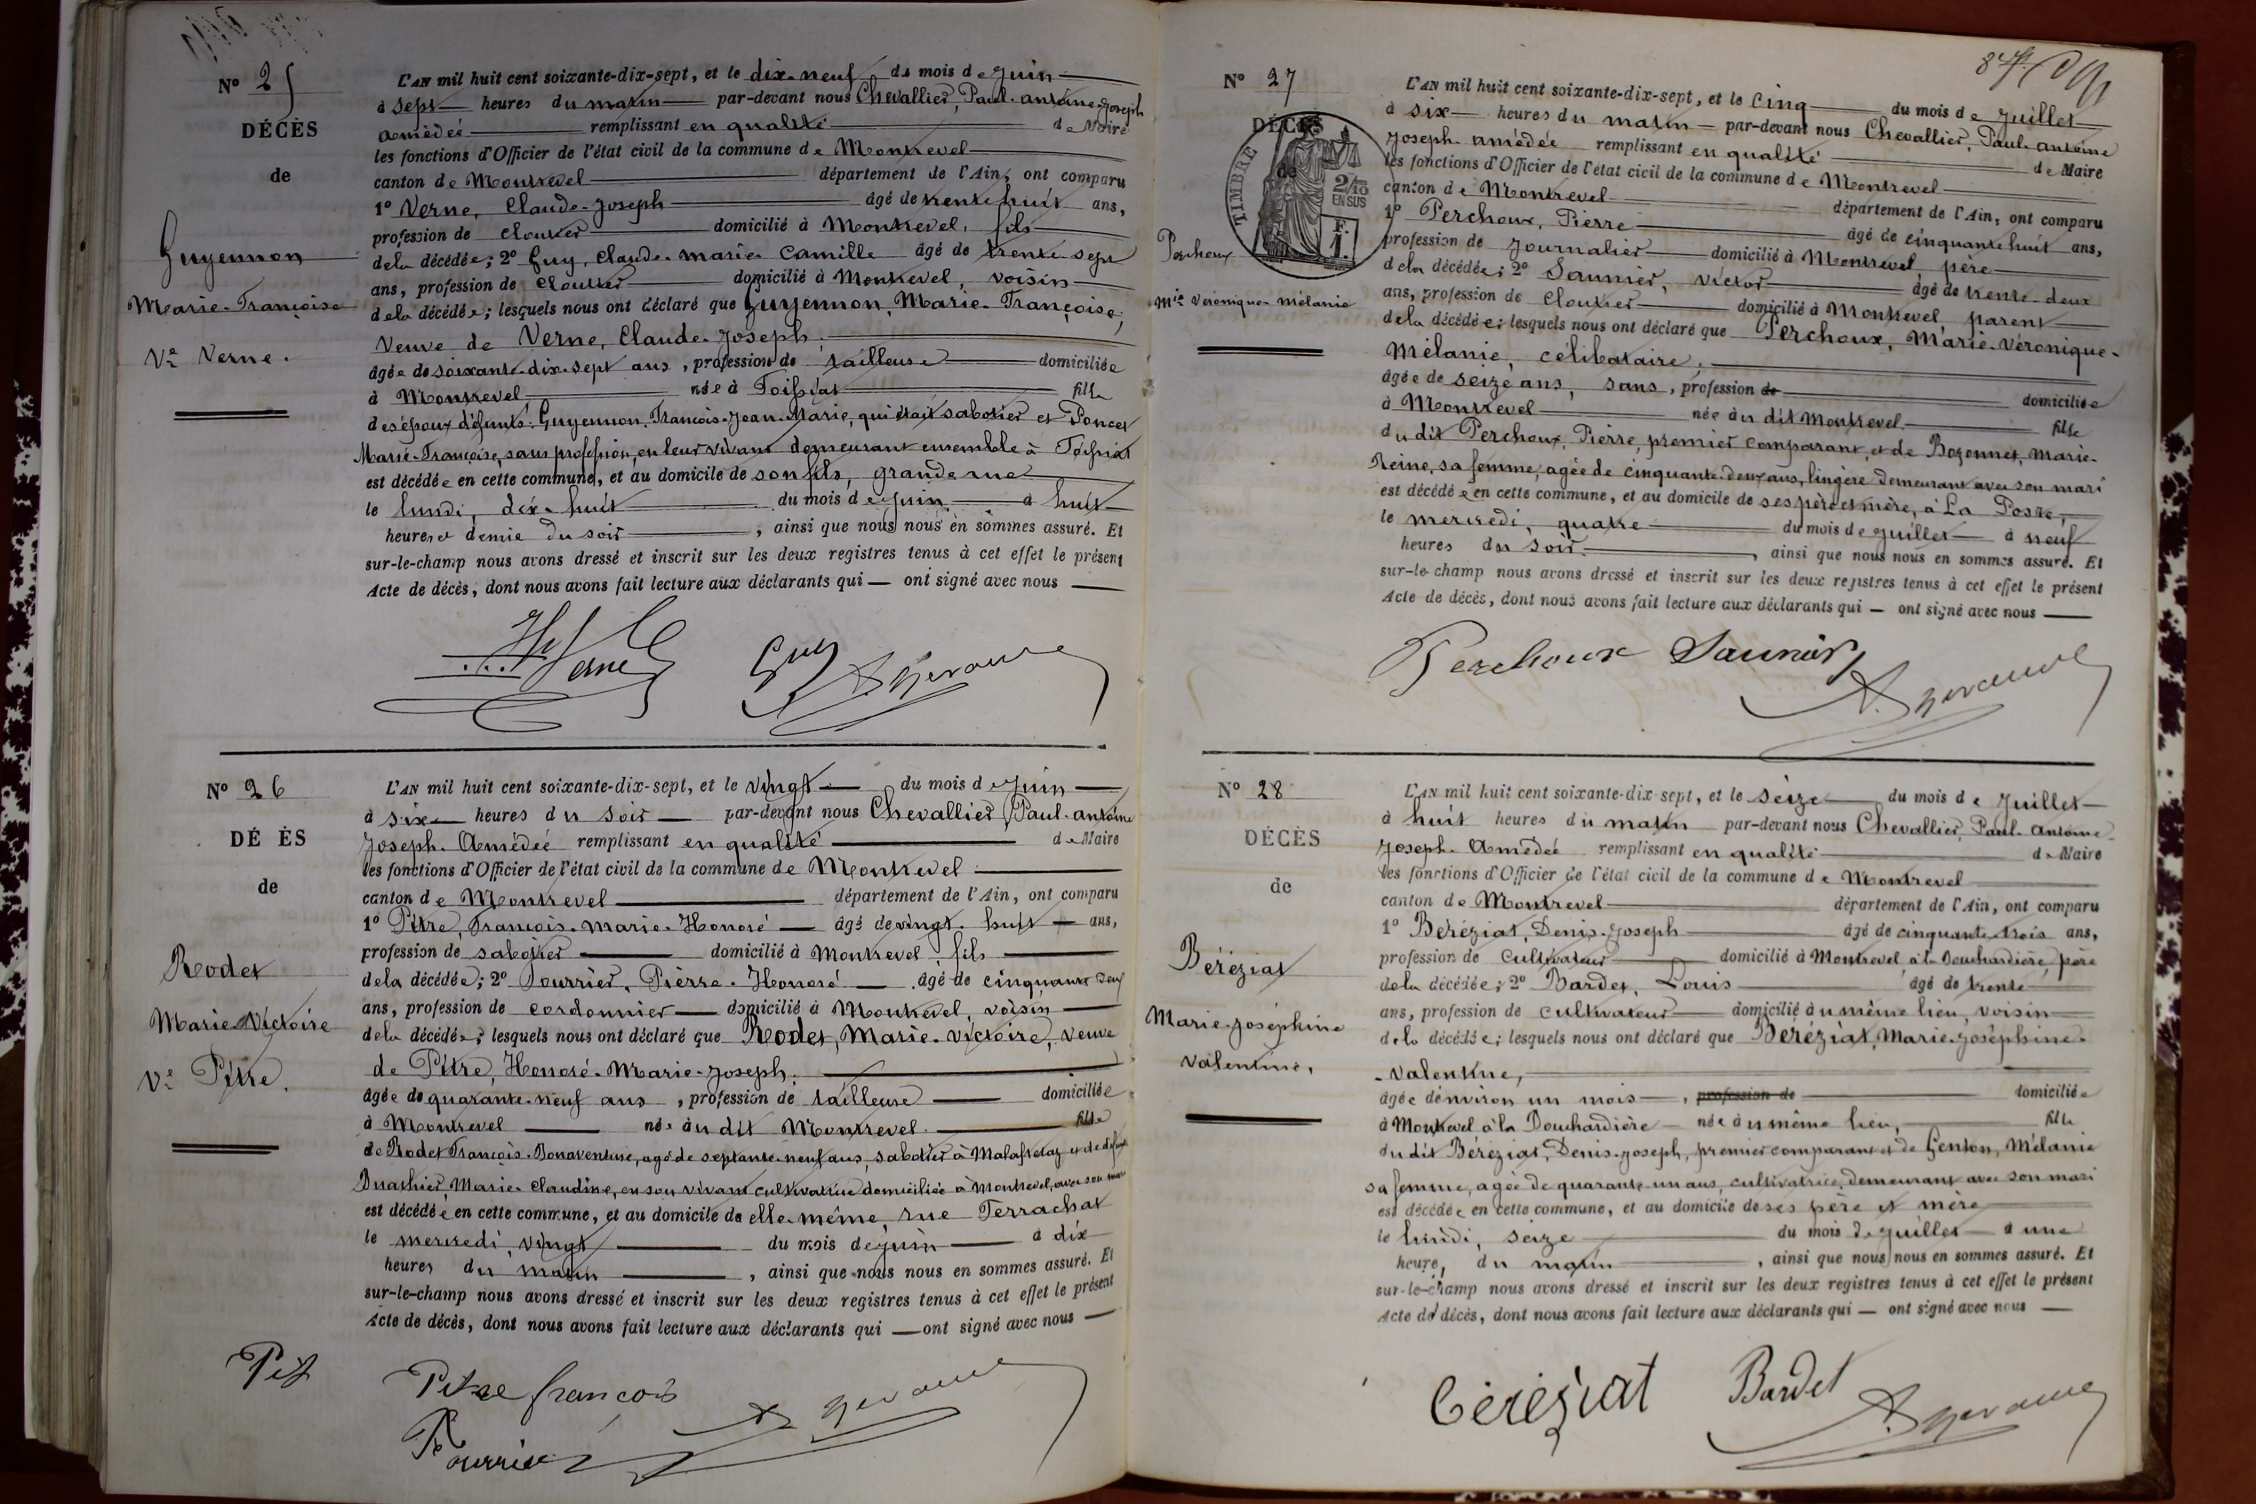 N° 25
DÉCÈS
de
Guyennon
Marie-Françoise
Ve Verne.
L'AN mil huit cent soixante-dix-sept, et le dix-neuf du mois de juin
à sept heures du matin par-devant nous Chevallier, Paul-antoine-Joseph
amédée remplissant en qualité de Maire
les fonctions d'Officier de l'état civil de la commune de Montrevel
canton de Montrevel département de l'Ain, ont comparu
1° Verne, Claude-Joseph âgé de trente huit ans,
profession de cloutier domicilié à Montrevel, fils
de la décédée; 2° Guy, Claude-marie-Camille âgé de trente sept
ans, profession de cloutier domicilié à Montrevel, voisin
de la décédée; lesquels nous ont déclaré que Guyennon, Marie-Françoise,
veuve de Verne, Claude-Joseph,
âgée de soixante-dix-sept ans, profession de tailleuse domiciliée
à Montrevel née à Foissiat fille
des époux défunts: Guyennon, François-Jean-Marie, qui était sabotier et Poncet
Marie-Françoise, sans profession, en leur vivant demeurant ensemble à Foissiat
est décédée en cette commune, et au domicile de son fils, grande rue
le lundi, dix-huit du mois de juin à huit
heures et demie du soir, ainsi que nous nous en sommes assuré. Et
sur-le-champ nous avons dressé et inscrit sur les deux registres tenus à cet effet le présent
Acte de décès, dont nous avons fait lecture aux déclarants qui — ont signé avec nous
Verne Guy
N° 26
DÉ ÈS
de
Rodet
Marie-Victoire
Ve Pitre.
L'AN mil huit cent soixante-dix-sept, et le vingt du mois de juin
à six heures du soir par-devant nous Chevallier, Paul-antoine
Joseph-Amédée remplissant en qualité de Maire
les fonctions d'Officier de l'état civil de la commune de Montrevel
canton de Montrevel département de l'Ain, ont comparu
1° Pitre, François-marie-Honoré âgé de vingt-huit ans,
profession de sabotier domicilié à Montrevel, fils
de la décédée; 2° Pourrier, Pierre-Honoré âgé de cinquante deux
ans, profession de cordonnier domicilié à Montrevel, voisin
de la décédée; lesquels nous ont déclaré que Rodet, Marie-Victoire, veuve
de Pitre, Honoré-Marie-Joseph,
âgée de quarante-neuf ans, profession de tailleuse domiciliée
à Montrevel née au dit Montrevel fille
de Rodet François-Bonaventure, agé de septante-neuf ans, sabotier à Malafretaz et de défunte
Marie-Claudine, en son vivant cultivatrice domiciliée à Montrevel, avec son mari
est décédée en cette commune, et au domicile de elle-même, rue Terrachat
le mercredi, vingt du mois de juin à dix
heures du matin, ainsi que nous nous en sommes assuré. Et
sur-le-champ nous avons dressé et inscrit sur les deux registres tenus à cet effet le présent
Acte de décès, dont nous avons fait lecture aux déclarants qui — ont signé avec nous
Pit Pitre francois
Pourrier
N° 27
DÉCÈS
de
TIMBRE
2/10
EN SUS
F.
1.
Perchoux
Mie Véronique-mélanie
L'AN mil huit cent soixante-dix-sept, et le cinq du mois de juillet
à six heures du matin par-devant nous Chevallier, Paul-antoine
Joseph-amédée remplissant en qualité de Maire
les fonctions d'Officier de l'état civil de la commune de Montrevel
canton de Montrevel département de l'Ain, ont comparu
1° Perchoux, Pierre âgé de cinquante huit ans,
profession de journalier domicilié à Montrevel, père
de la décédée; 2° Saunier, victor âgé de trente-deux
ans, profession de cloutier domicilié à Montrevel, parent
de la décédée; lesquels nous ont déclaré que Perchoux, Marie-Véronique-
Mélanie, célibataire,
âgée de seize ans, sans, profession de domiciliée
à Montrevel née au dit Montrevel fille
du dit Perchoux, Pierre, premier comparant, et de Bozonnet, Marie-
Reine, sa femme, agée de cinquante-deux ans, lingère demeurant avec son mari
est décédée en cette commune, et au domicile de ses père et mère, à La Poste,
le mercredi, quatre du mois de juillet à neuf
heures du soir, ainsi que nous nous en sommes assuré. Et
sur-le-champ nous avons dressé et inscrit sur les deux registres tenus à cet effet le présent
Acte de décès, dont nous avons fait lecture aux déclarants qui — ont signé avec nous
Perchoux Saunier
N° 28
DÉCÈS
de
Béréziat
Marie-Joséphine
Valentine,
L'AN mil huit cent soixante-dix-sept, et le seize du mois de juillet
à huit heures du matin par-devant nous Chevallier, Paul-antoine
Joseph-Amédée remplissant en qualité de Maire
les fonctions d'Officier de l'état civil de la commune de Montrevel
canton de Montrevel département de l'Ain, ont comparu
1° Béréziat, Denis-Joseph âgé de cinquante trois ans,
profession de cultivateur domicilié à Montrevel à la Douchardière, père
de la décédée; 2° Bardet, Louis âgé de trente
ans, profession de cultivateur domicilié au même lieu, voisin
de la décédée; lesquels nous ont déclaré que Béréziat, Marie-Joséphine-
-Valentine,
âgée d'environ un mois, profession de domiciliée
à Montrevel à la Douchardière née au même lieu, fille
du dit Béréziat, Denis-Joseph, premier comparant et de Genton, Mélanie
sa femme, agée de quarante-un ans, cultivatrice, demeurant avec son mari
est décédée en cette commune, et au domicile de ses père et mère
le lundi, seize du mois de juillet à une
heure, du matin, ainsi que nous nous en sommes assuré. Et
sur-le-champ nous avons dressé et inscrit sur les deux registres tenus à cet effet le présent
Acte de décès, dont nous avons fait lecture aux déclarants qui — ont signé avec nous
Béréziat Bardet